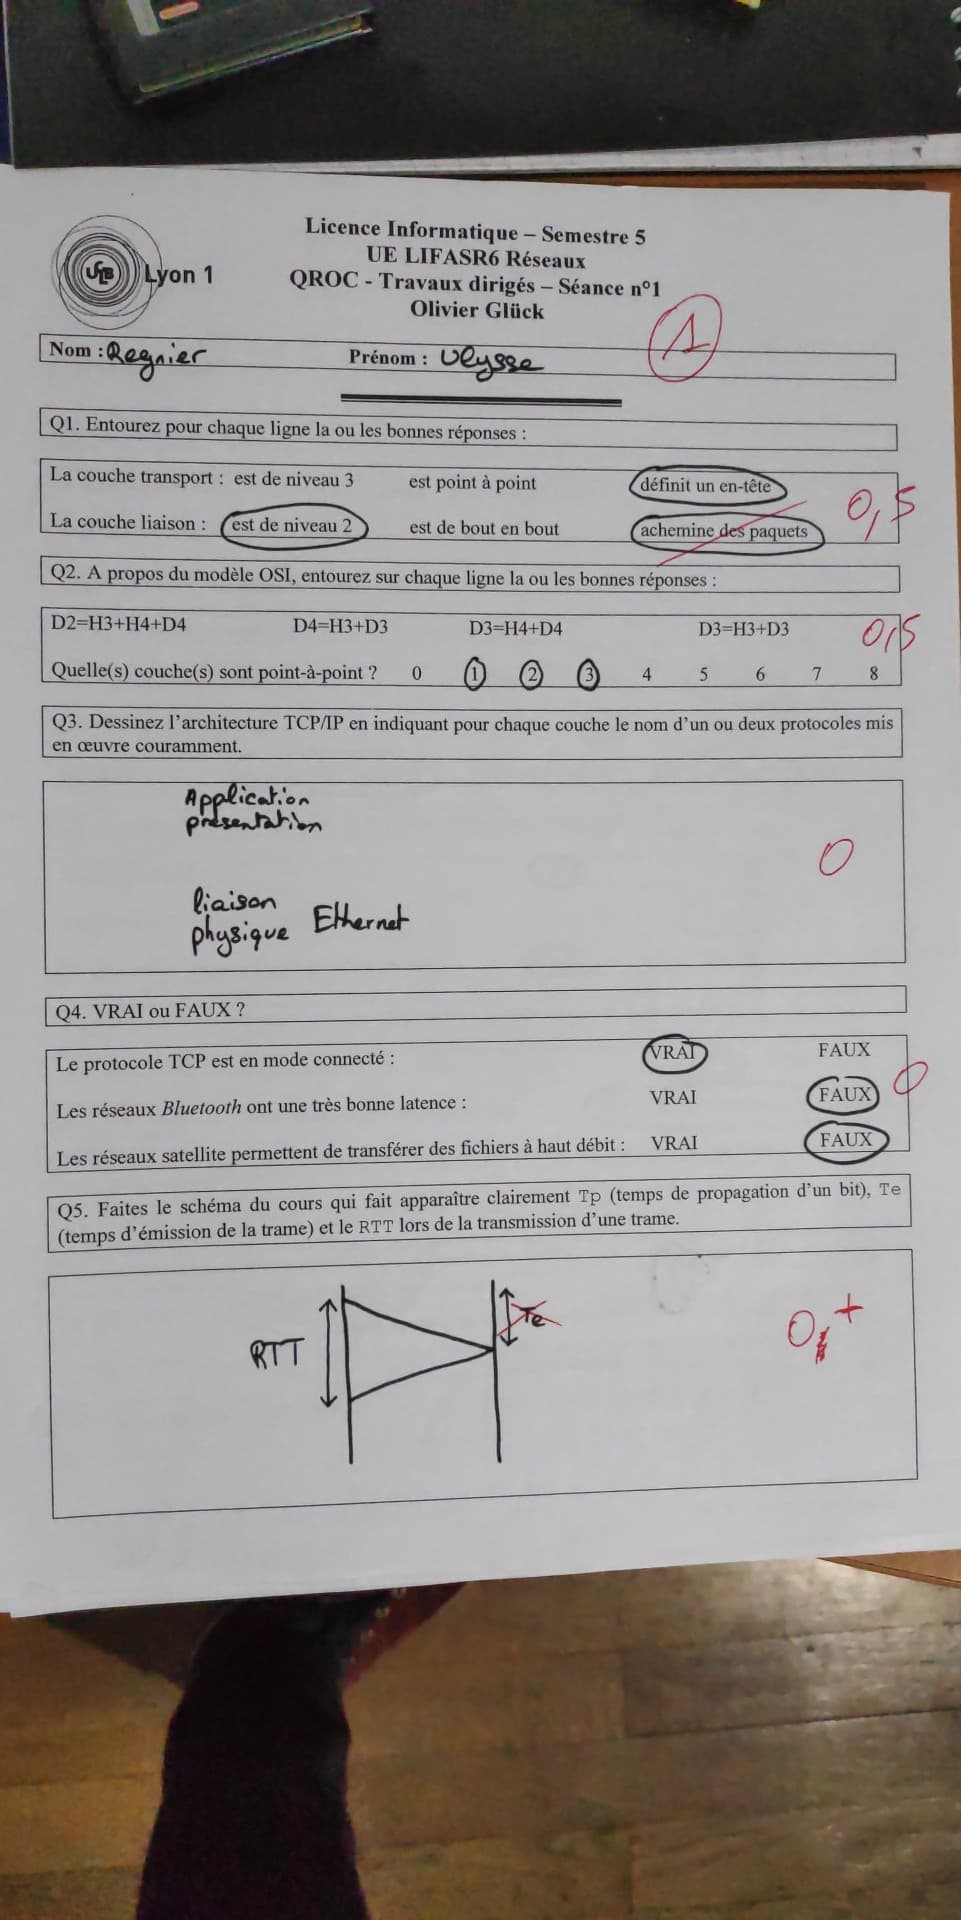 Licence Informatique – Semestre 5
UE LIFASR6 Réseaux
QROC - Travaux dirigés – Séance n°1
Olivier Glück
UCB Lyon 1
1
Nom : Regnier Prénom : Ulysse
Q1. Entourez pour chaque ligne la ou les bonnes réponses :
La couche transport : est de niveau 3 est point à point définit un en-tête
0,5
La couche liaison : est de niveau 2 est de bout en bout achemine des paquets
Q2. A propos du modèle OSI, entourez sur chaque ligne la ou les bonnes réponses :
D2=H3+H4+D4 D4=H3+D3 D3=H4+D4 D3=H3+D3
0,5
Quelle(s) couche(s) sont point-à-point ? 0 1 2 3 4 5 6 7 8
Q3. Dessinez l'architecture TCP/IP en indiquant pour chaque couche le nom d'un ou deux protocoles mis
en œuvre couramment.
Application
présentation
0
liaison
physique Ethernet
Q4. VRAI ou FAUX ?
Le protocole TCP est en mode connecté : VRAI FAUX
0
Les réseaux Bluetooth ont une très bonne latence : VRAI FAUX
Les réseaux satellite permettent de transférer des fichiers à haut débit : VRAI FAUX
Q5. Faites le schéma du cours qui fait apparaître clairement Tp (temps de propagation d'un bit), Te
(temps d'émission de la trame) et le RTT lors de la transmission d'une trame.
Te
0,+
RTT